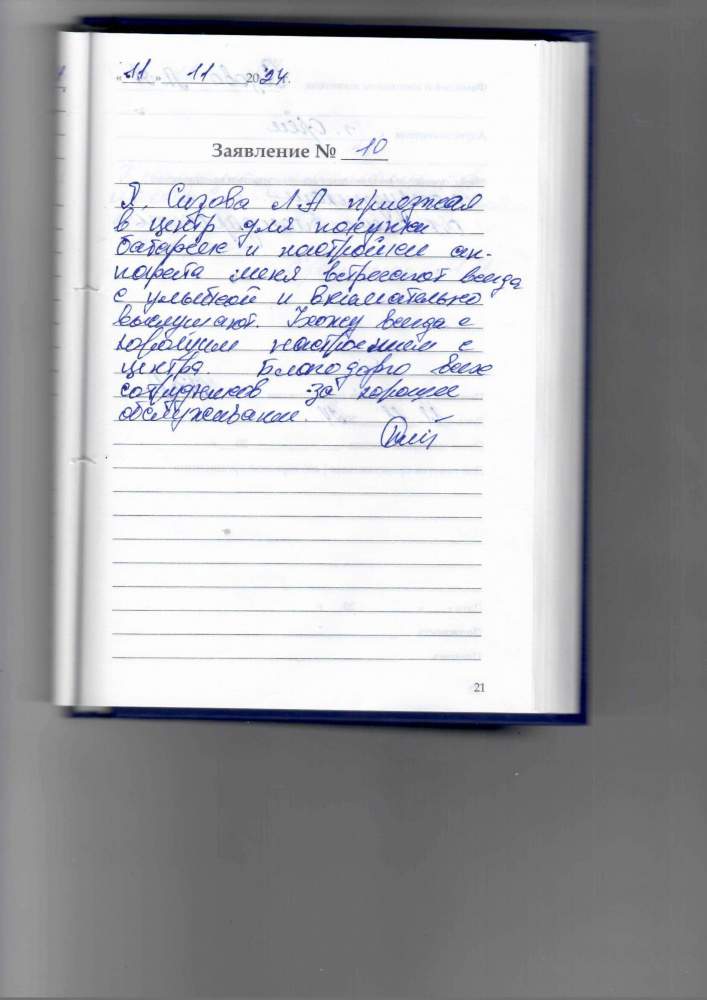 « 11 » 11 20 24 г.
Заявление № 10
Я, Сизова Л А приезжая
в центр для покупки
батареек и настройки ап-
парата меня встречают всегда
с улыбкой и внимательно
выслушают. Ухожу всегда с
хорошим настроением с
центра. Благодарю всех
сотрудников за хорошее
обслуживание.
21